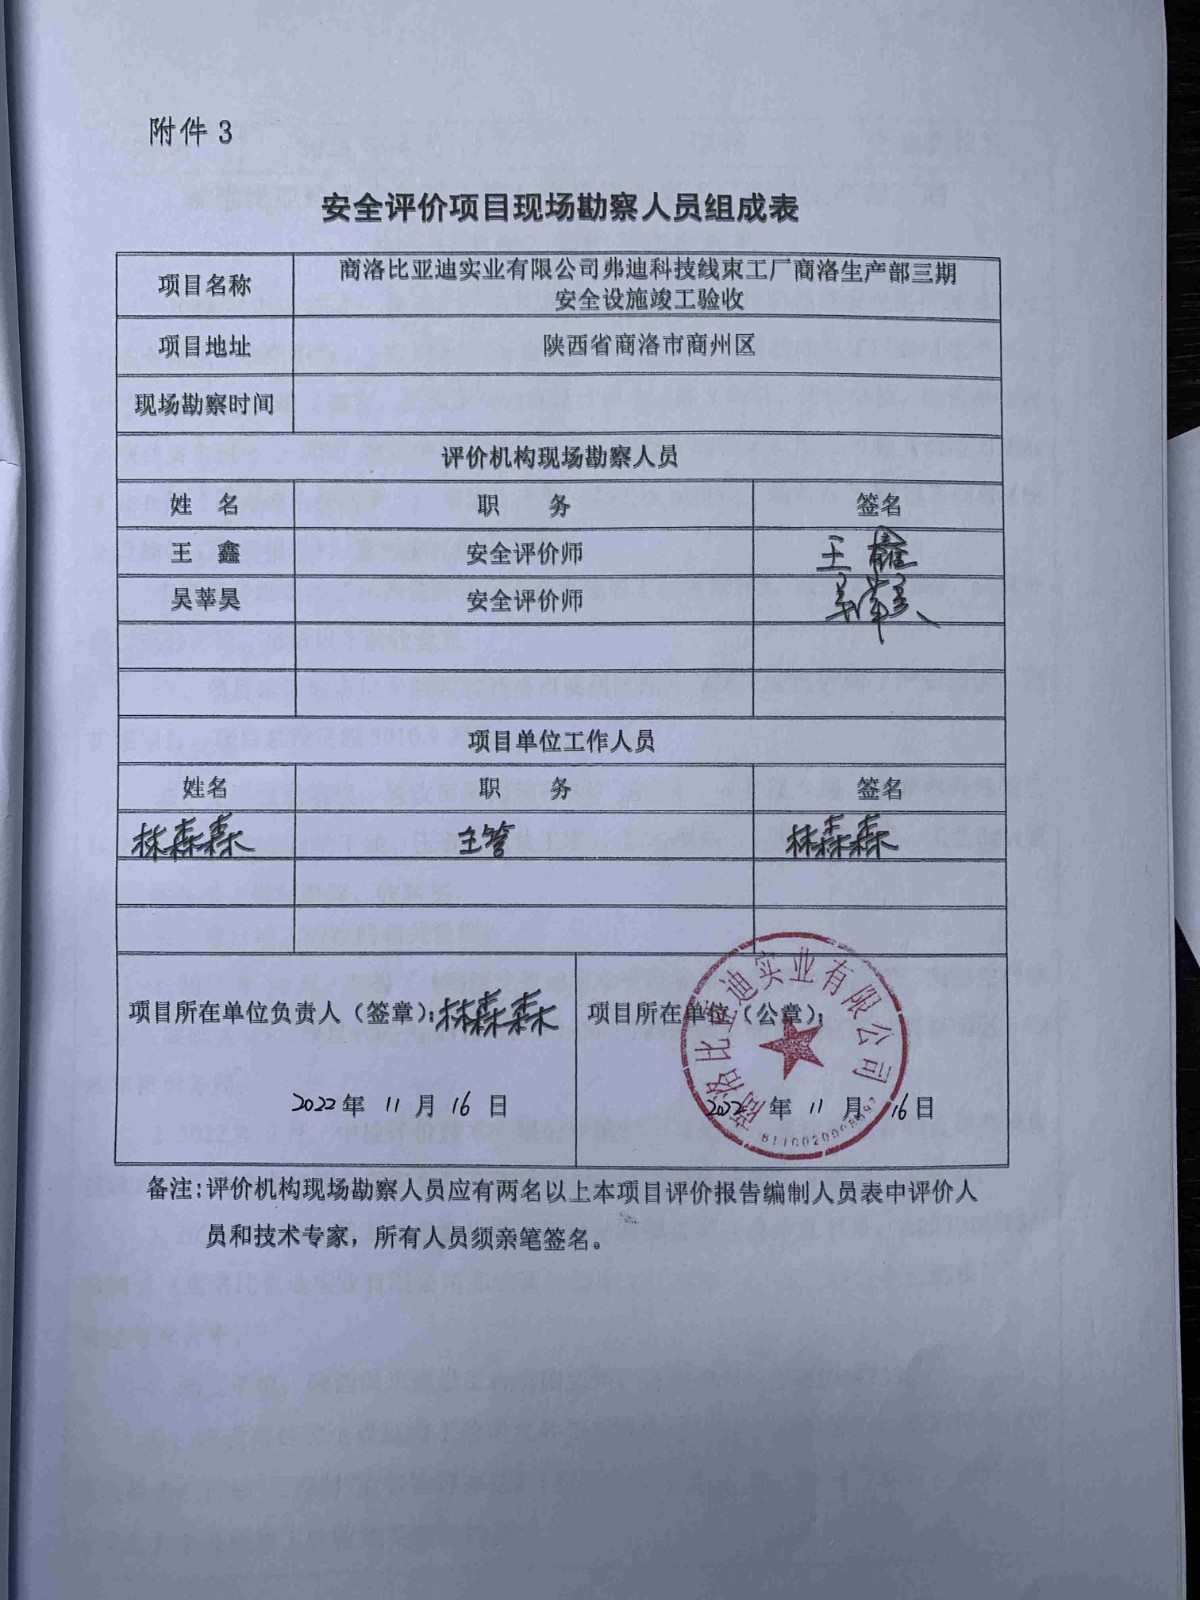 附件 3
安全评价项目现场勘察人员组成表
项目名称
商洛比亚迪实业有限公司弗迪科技线束工厂商洛生产部三期
安全设施竣工验收
项目地址
陕西省商洛市商州区
现场勘察时间
评价机构现场勘察人员
姓 名 职 务 签名
王 鑫 安全评价师 王鑫
吴莘昊 安全评价师 吴莘昊
项目单位工作人员
姓名 职 务 签名
林森森 主管 林森森
项目所在单位负责人（签章）：林森森
2022年 11 月 16 日
项目所在单位（公章）：
2022年 11 月 16日
商洛比亚迪实业有限公司
备注：评价机构现场勘察人员应有两名以上本项目评价报告编制人员表中评价人
员和技术专家，所有人员须亲笔签名。